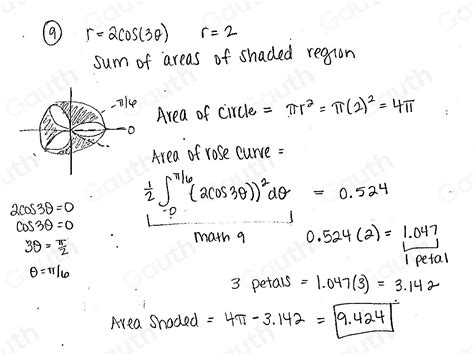 ⑨ r = 2cos(3θ) r = 2
Sum of areas of shaded region
π/6
0
Area of Circle = πr² = π(2)² = 4π
Area of rose curve =
½ ∫₀^π/6 (2cos3θ))² dθ = 0.524
math 9
2cos3θ = 0
cos3θ = 0
3θ = π/2
θ = π/6
0.524(2) = 1.047
1 petal
3 petals = 1.047(3) = 3.142
Area Shaded = 4π - 3.142 = 9.424
Gauth